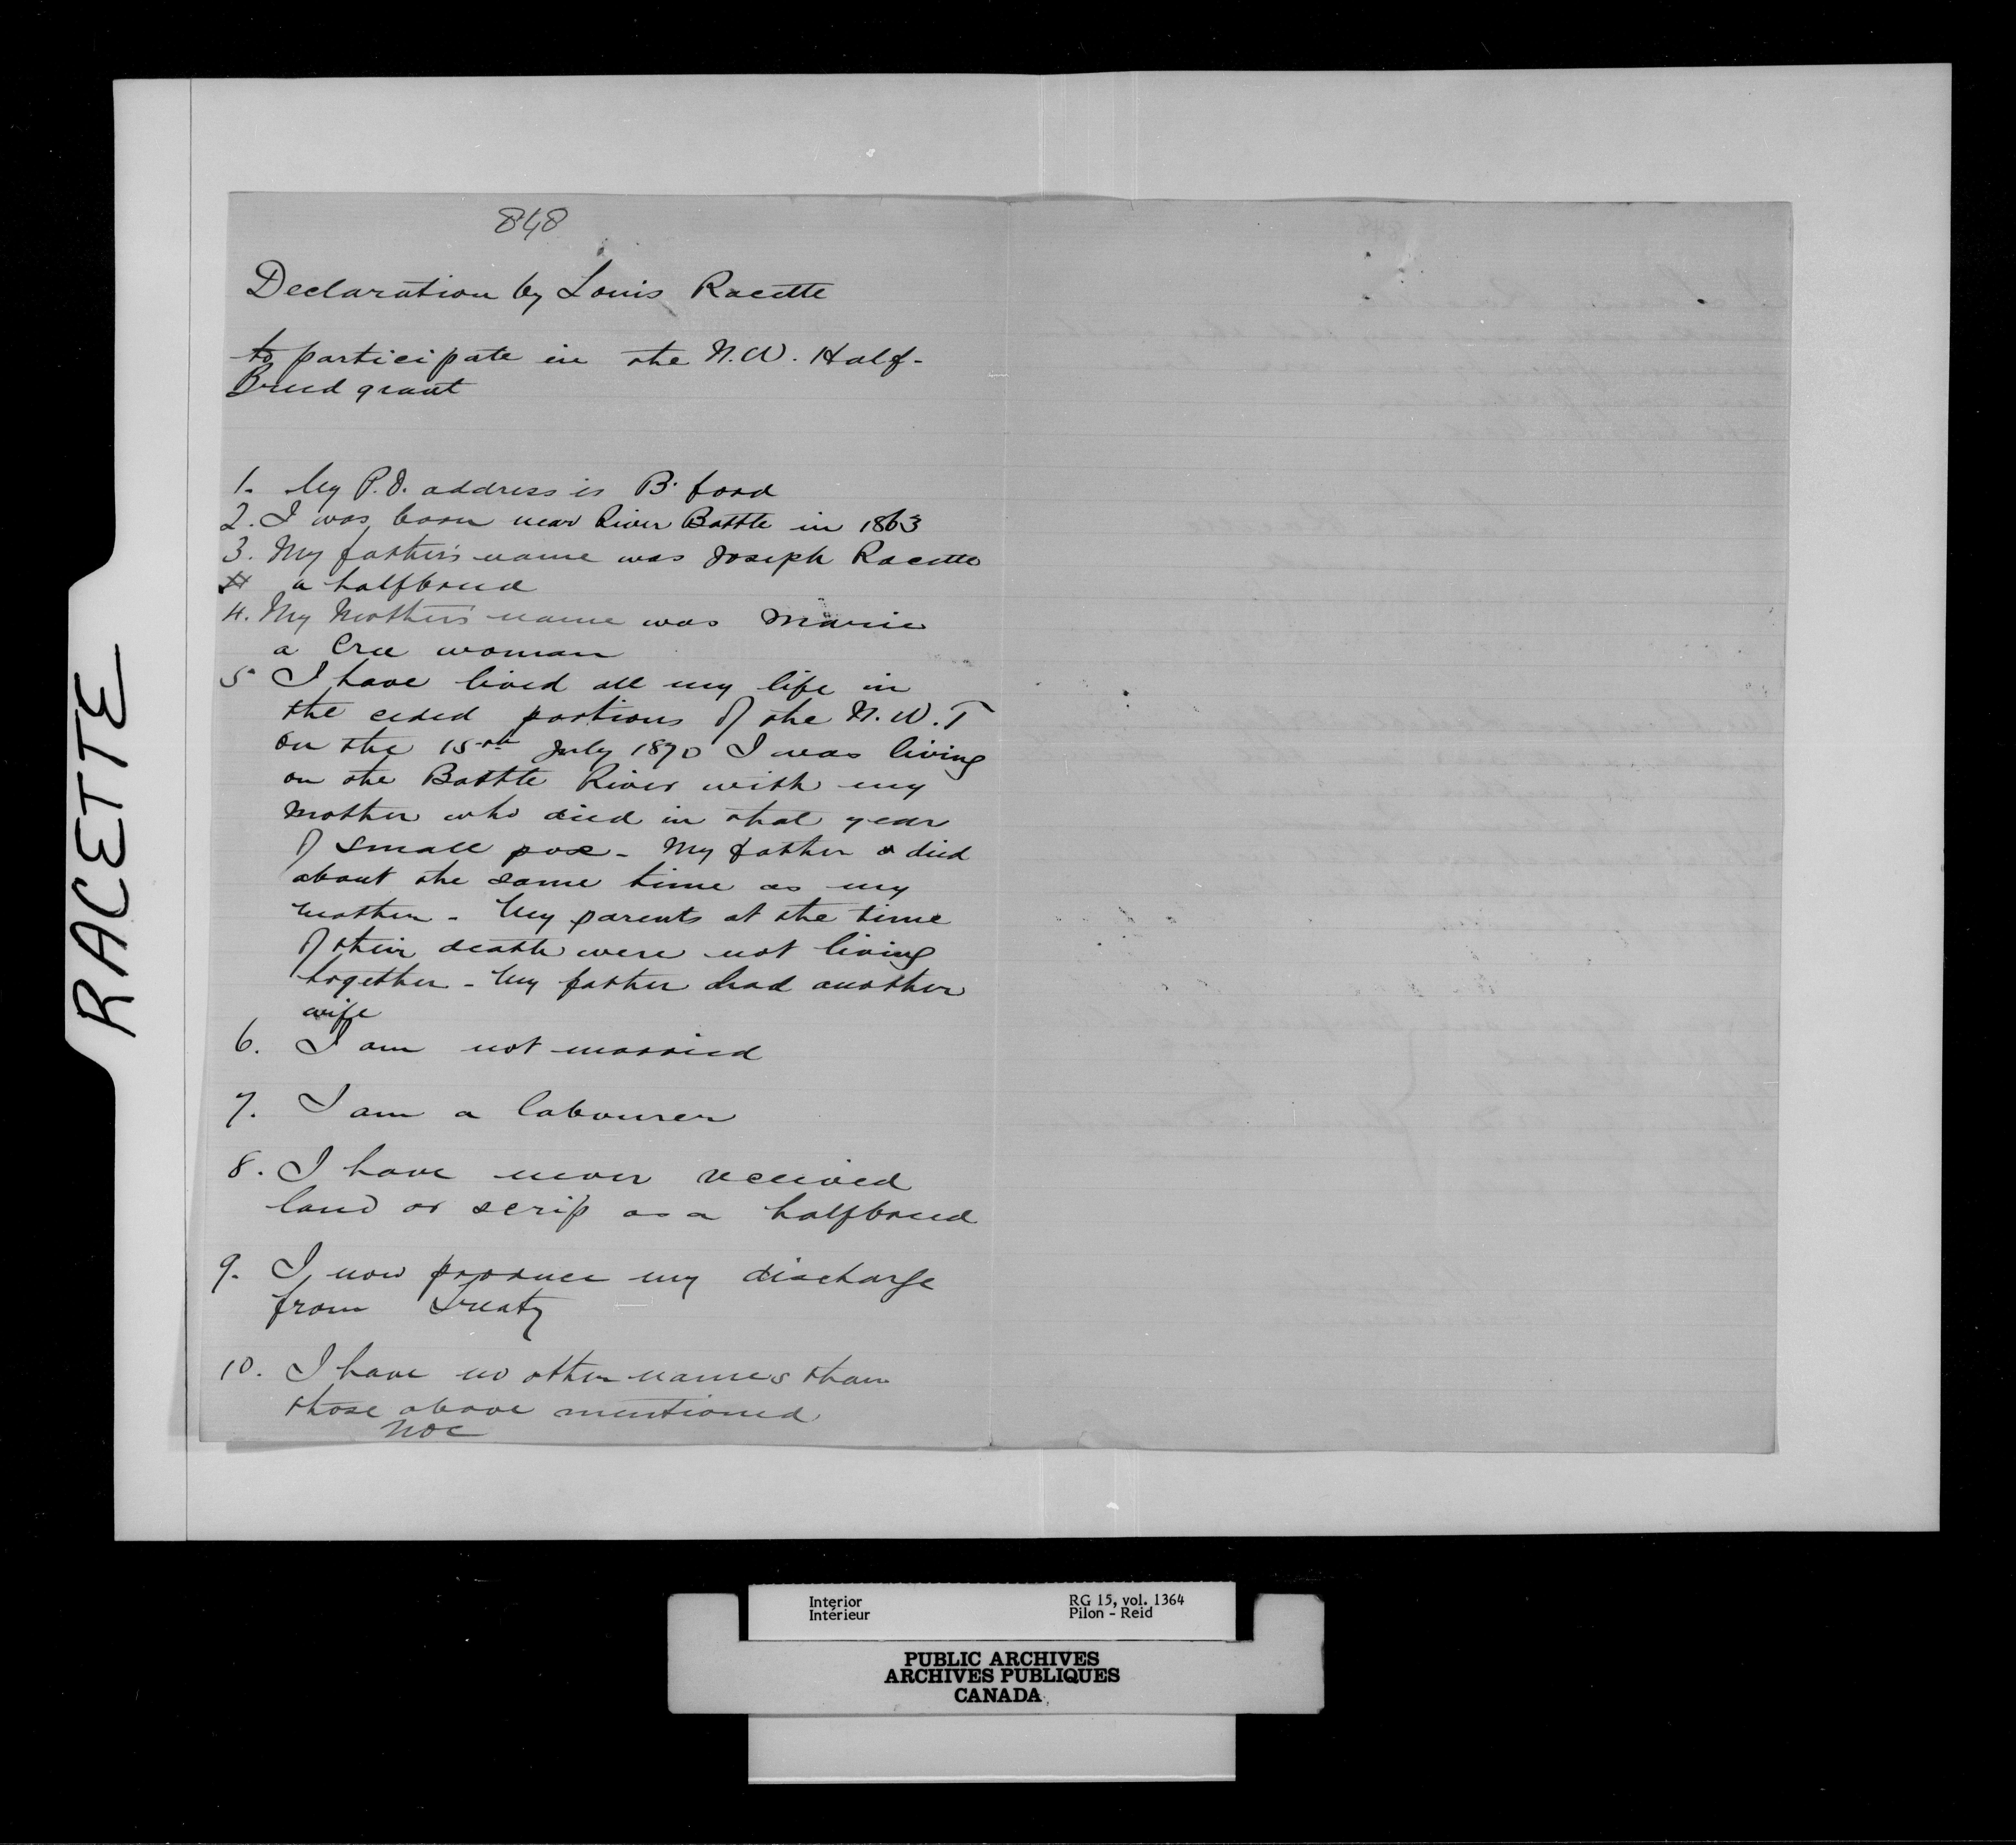 848
Declaration by Louis Racette
to participate in the N.W. Half-
Breed grant
1. My P.O. address is B. ford
2. I was born near River Battle in 1863
3. My father's name was Joseph Racette
a halfbreed
4. My Mother's name was Marie
a Cree woman
5 I have lived all my life in
the ceded portions of the N.W.T
on the 15th July 1870 I was living
on the Battle River with my
mother who died in that year
of small pox - My father died
about the same time as my
mother - My parents at the time
of their death were not living
together - My father had another
wife
6. I am not married
7. I am a labourer
8. I have never received
land or scrip as a halfbreed
9. I now produce my discharge
from Treaty
10. I have no other names than
those above mentioned
RACETTE
Interior
Intérieur
RG 15, vol. 1364
Pilon - Reid
PUBLIC ARCHIVES
ARCHIVES PUBLIQUES
CANADA